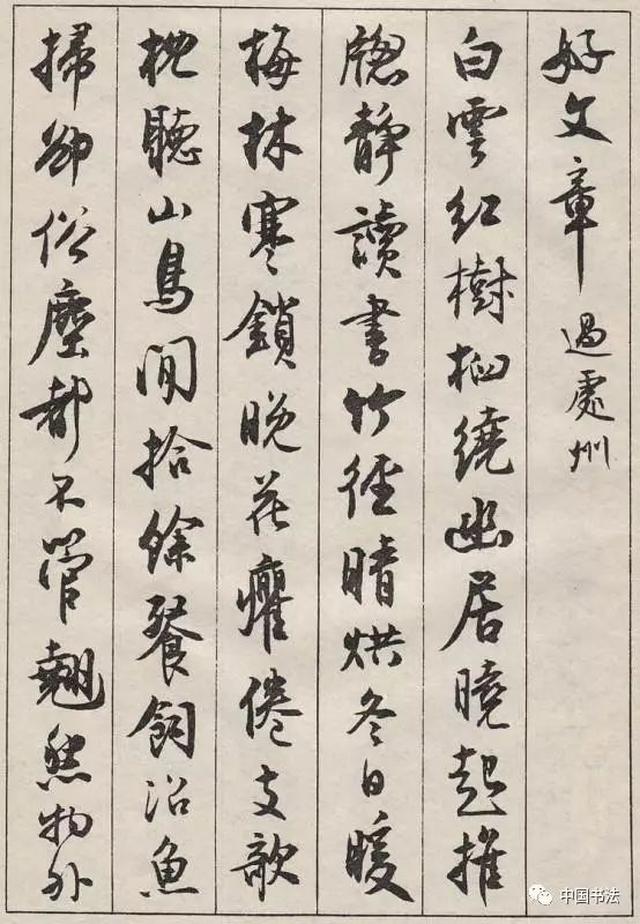 好文章 過處州
白雲紅樹相繞幽居曉起推
牕靜讀書竹徑晴烘冬日暖
梅林寒鎖晚花癯倦支欹
枕聽山鳥閒拾餘餐飼沼魚
掃卻俗塵都不管翹然物外
中国书法